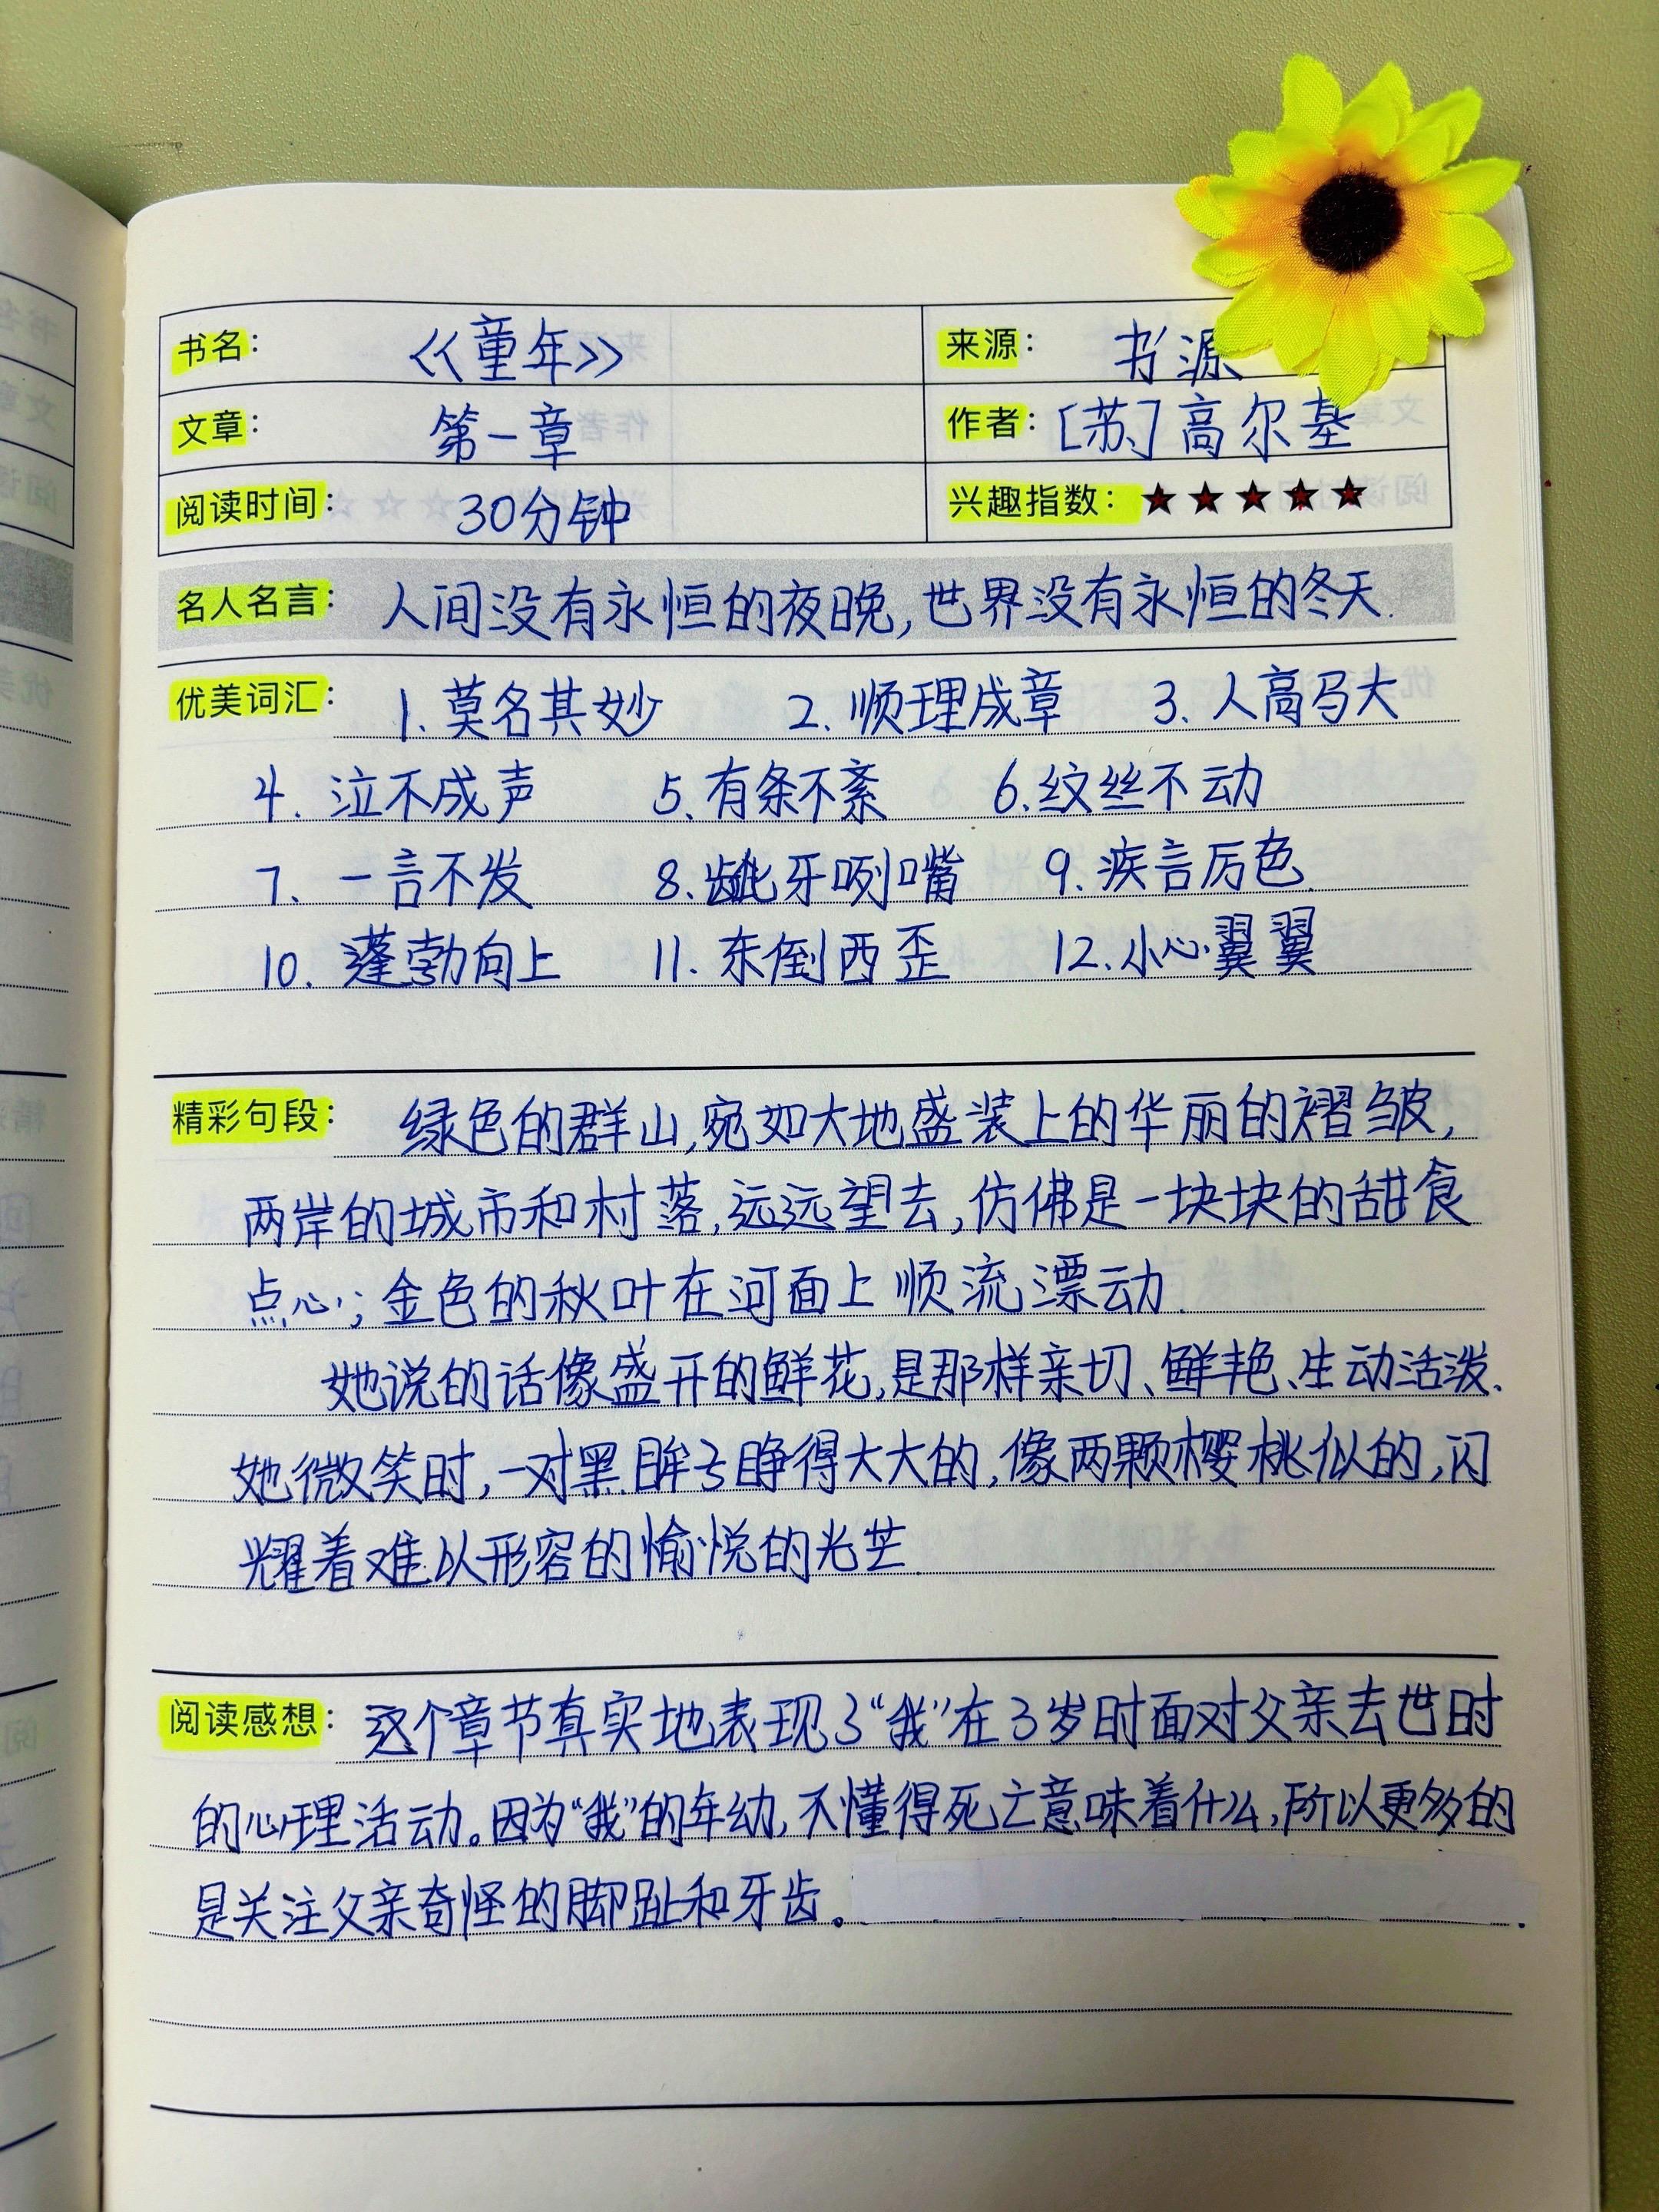 书名： 《童年》 来源： 书源
文章： 第一章 作者： [苏]高尔基
阅读时间： 30分钟 兴趣指数：★★★★★
名人名言： 人间没有永恒的夜晚,世界没有永恒的冬天.
优美词汇： 1.莫名其妙 2.顺理成章 3.人高马大
4.泣不成声 5.有条不紊 6.纹丝不动
7.一言不发 8.龇牙咧嘴 9.疾言厉色.
10.蓬勃向上 11.东倒西歪 12.小心翼翼
精彩句段： 绿色的群山,宛如大地盛装上的华丽的褶皱,
两岸的城市和村落,远远望去,仿佛是一块块的甜食
点心;金色的秋叶在河面上顺流漂动.
她说的话像盛开的鲜花,是那样亲切、鲜艳、生动活泼.
她微笑时,一对黑眸子睁得大大的,像两颗樱桃似的,闪
耀着难以形容的愉悦的光芒.
阅读感想： 这个章节真实地表现了“我”在3岁时面对父亲去世时
的心理活动。因为“我”的年幼,不懂得死亡意味着什么,所以更多的
是关注父亲奇怪的脚趾和牙齿。